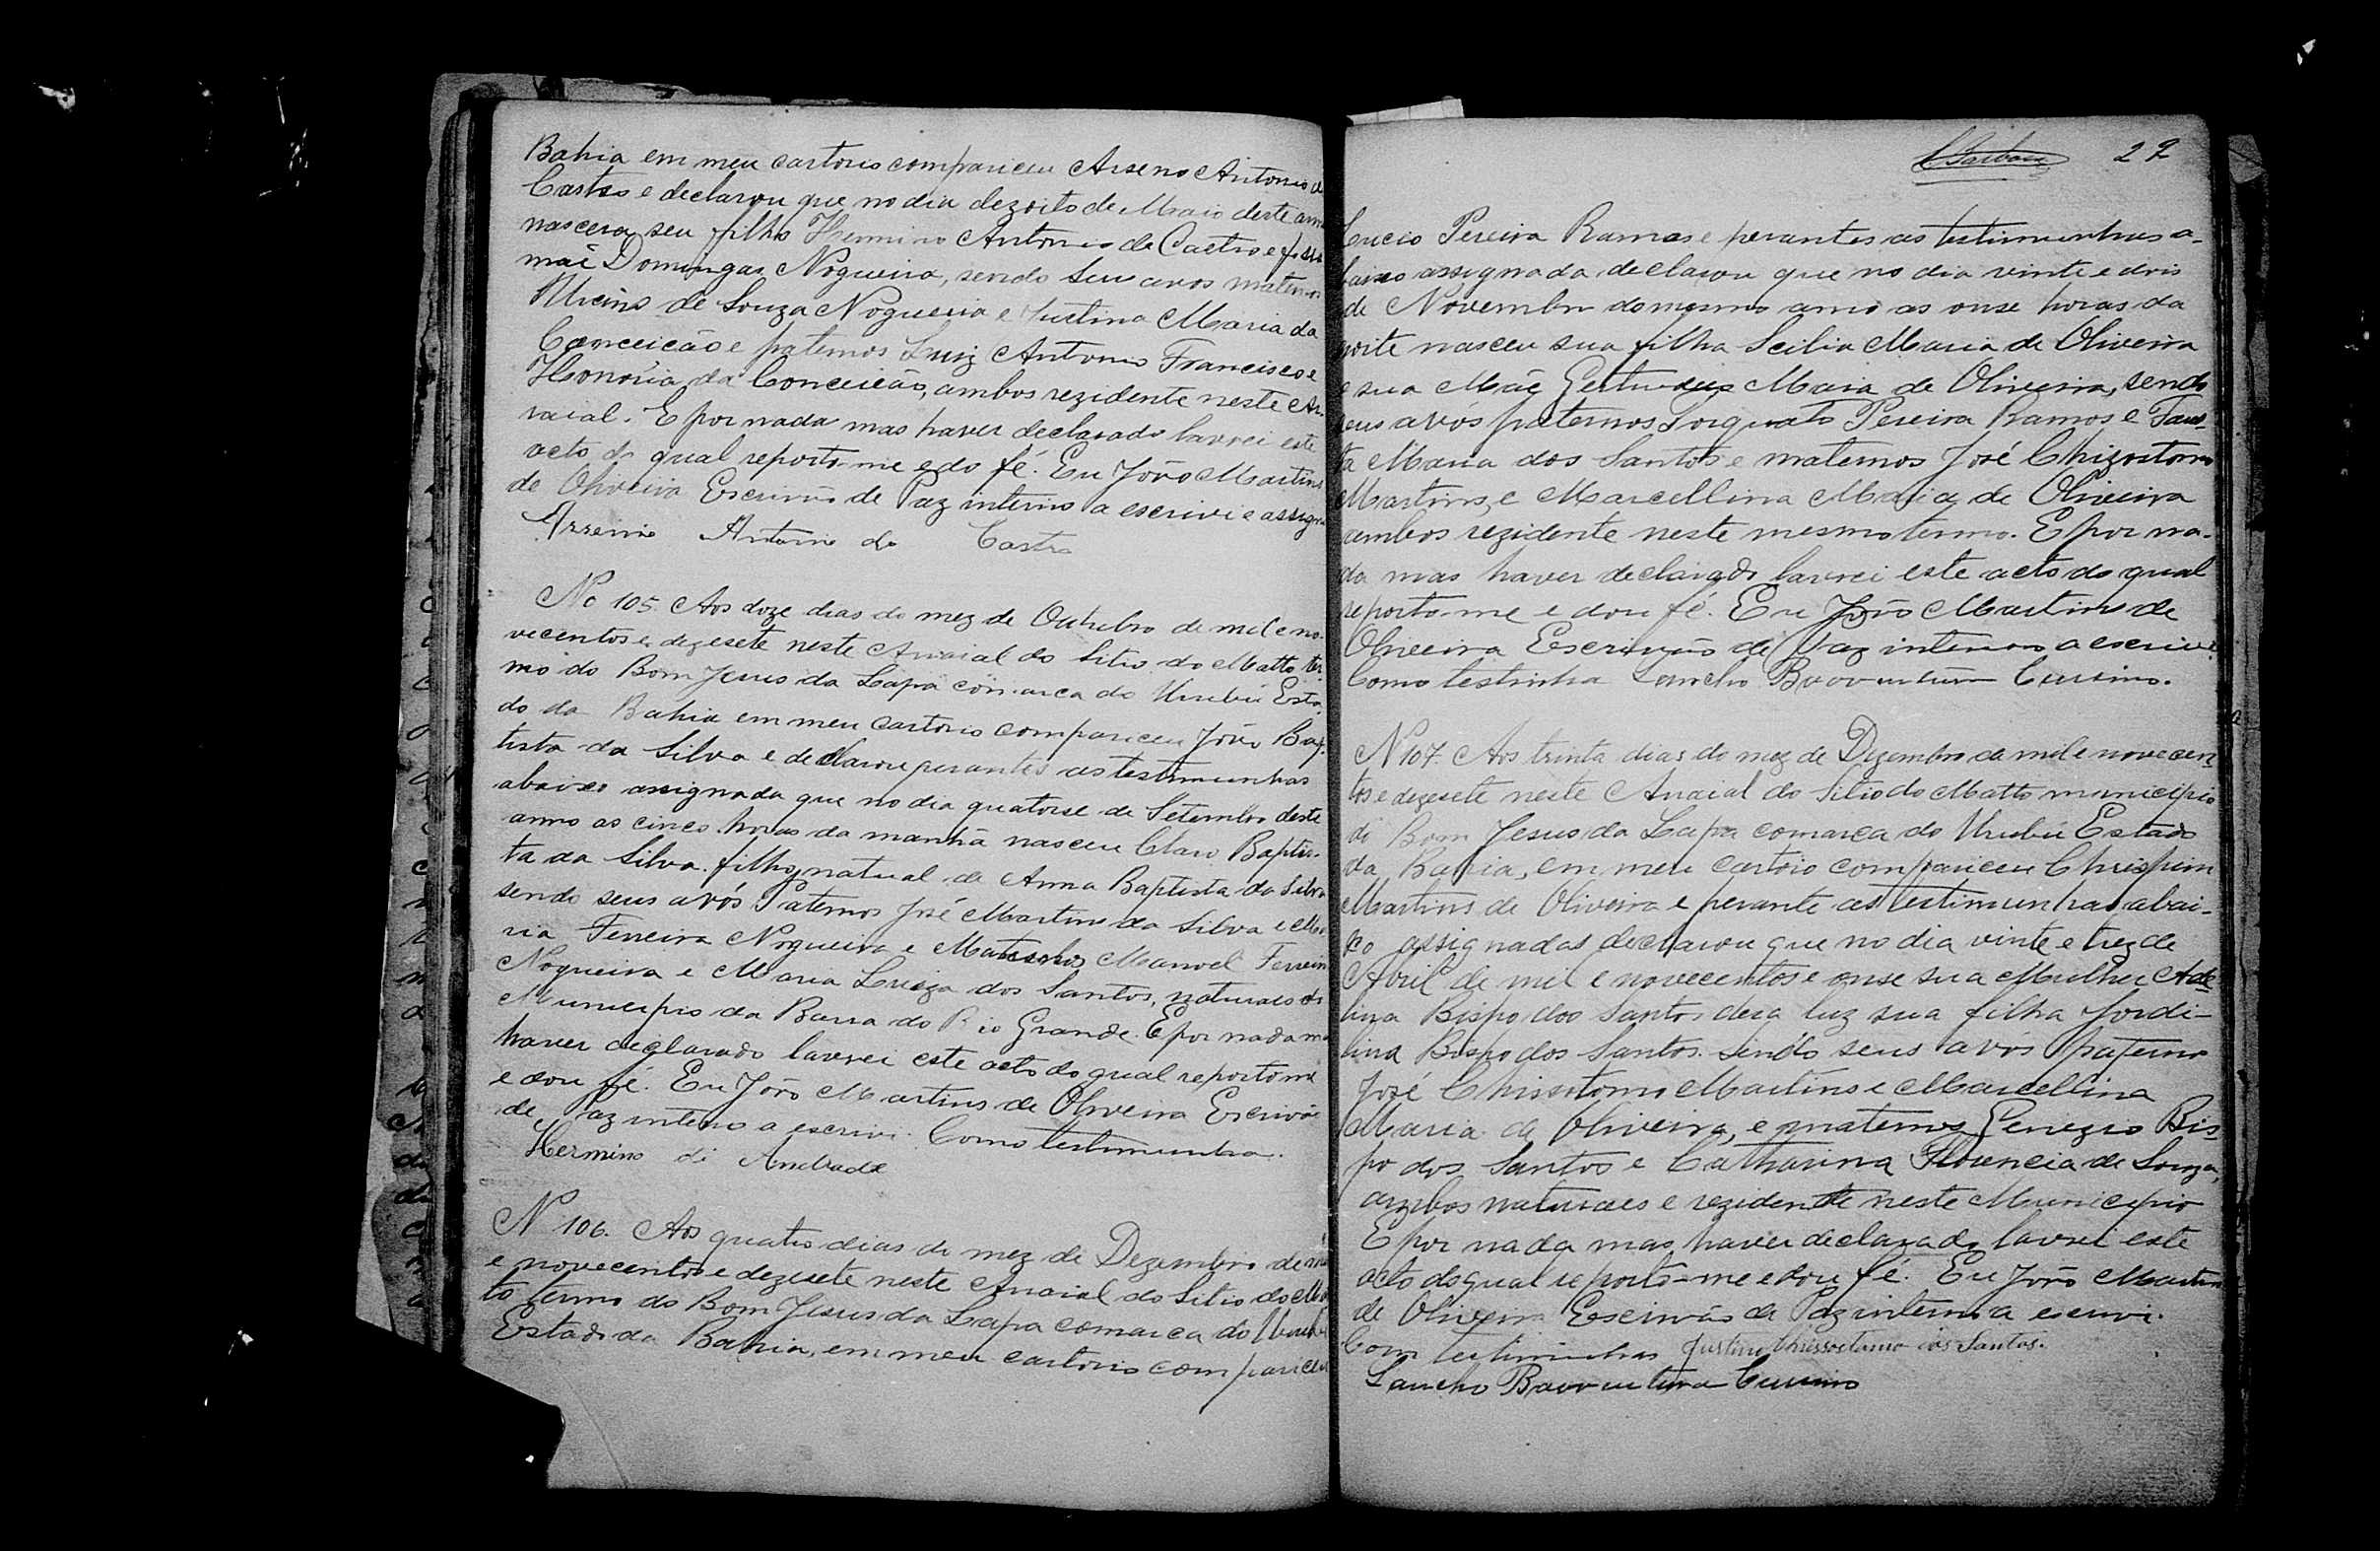 Bahia em meu cartorio compariceu Arseno Antonio de
Castro e declarou que no dia dezoito de Maio deste anno
nascera seu filho Hermino Antonio de Castro e
mãe Domingas Nogueira, sendo seus avos maternos
de Souza Nogueira e Justina Maria da
Conceicão e paternos Luiz Antonio Francisco e
Honoria da Conceicão, ambos rezidente neste Ar-
raial. E por nada mas haver declarado lavrei este
acto do qual reporto-me e do fé. Eu João Martins
de Oliveira Escrivão de Paz interino a escrivi e assigno
Arsenio Antonio de Castro
No 105. Aos doze dias do mez de Outubro de mil e no-
vecentos e dezesete neste Arraial do Sitio do Matto ter-
mo do Bom Jesus da Lapa comarca do Urubú Esta-
do da Bahia em meu cartorio compariceu João Bap-
tista da Silva e declarou perantes as testimunhas
abaixo assignada que no dia quatorse de Setembro deste
anno as cinco horas da manhã nasceu Claro Baptis-
ta da Silva. filho natural de Anna Baptista da Silva
sendo seus avós Paternos José Martins da Silva e Ma-
ria Ferreira Nogueira e Maternos Manoel Ferreira
Nogueira e Maria Luiza dos Santos, naturaes do
Municipio da Barra do Rio Grande. E por nada mas
haver declarado lavrei este acto do qual reporto me
e dou fé. Eu João Martins de Oliveira Escrivão
de Paz interino a escrivi. Como testimunha.
Hermino di Andrade
N 106. Aos quatro dias do mez de Dezembro de mil
e novecentos e dezesete neste Arraial do Sitio do Mat-
to termo do Bom Jesus da Lapa comarca do Urubú
Estado da Bahia, em meu cartorio compariceu
22
Lucio Pereira Ramos e perantes as testimunhas a-
baixo assignada declarou que no dia vinte e dois
de Novembro do mesmo anno as onse horas da
noite nasceu sua filha Scilia Maria de Oliveira
e sua Mãe Gertrudes Maria de Oliveira, sendo
seus avós paternos Torquato Pereira Ramos e Faus-
ta Maria dos Santos e maternos José Chizostomo
Martins, e Marcellina Maria de Oliveira
ambos rezidente neste mesmo termo. E por na-
da mas haver declarado lavrei este acto do qual
reporto-me e dou fé. Eu João Martins de
Oliveira Escrivão de Paz interino a escrivi.
Como testinha Sancho Boaventura Cursino.
N 107. Aos trinta dias do mez de Dezembro de mil e novecen-
tos e dezesete neste Arraial do Sitio do Matto municipio
do Bom Jesus da Lapa comarca do Urubú Estado
da Bahia, em meu cartorio compariceu Chrispim
Martins de Oliveira e perante as testimunhas abai-
xo assignadas declarou que no dia vinte e trez de
Abril de mil e novecentos e onse sua Mulher Ade-
lina Bispo dos Santos dera luz sua filha Jordi-
lina Bispo dos Santos. sendo seus avós paterno
José Chissotomo Martins e Marcellina
Maria de Oliveira, e maternos Genezio Bis-
po dos Santos e Catharina Florencia de Souza,
ambos naturaes e rezidente neste Municipio
E por nada mas haver declarado lavrei este
acto do qual reporto-me e dou fé. Eu João Martins
de Oliveira Escrivão de Paz interino a escrivi.
Com testiminhas Justino Chrissostamo dos Santos.
Sancho Boaventura Cursino